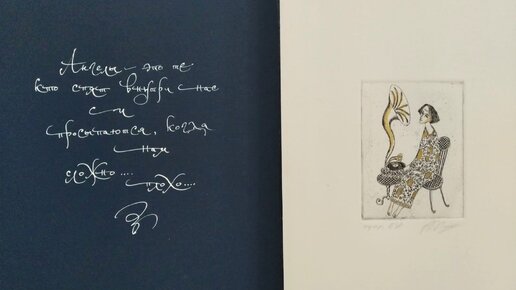 Ангелы – это те
кто спят внутри нас
и
просыпаются, когда
нам
сложно....
плохо....